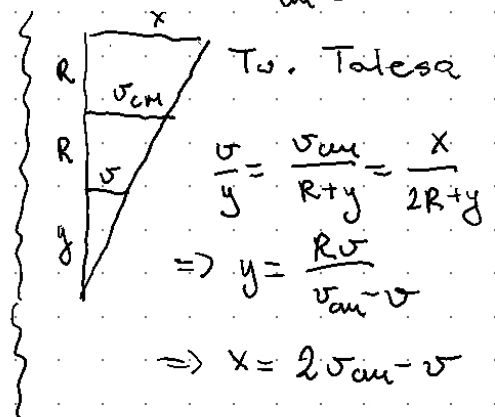 x
R
v_CM
R
v
y
Tw. Talesa
v/y = v_cm/(R+y) = x/(2R+y)
=> y = Rv/(v_cm - v)
=> x = 2v_cm - v